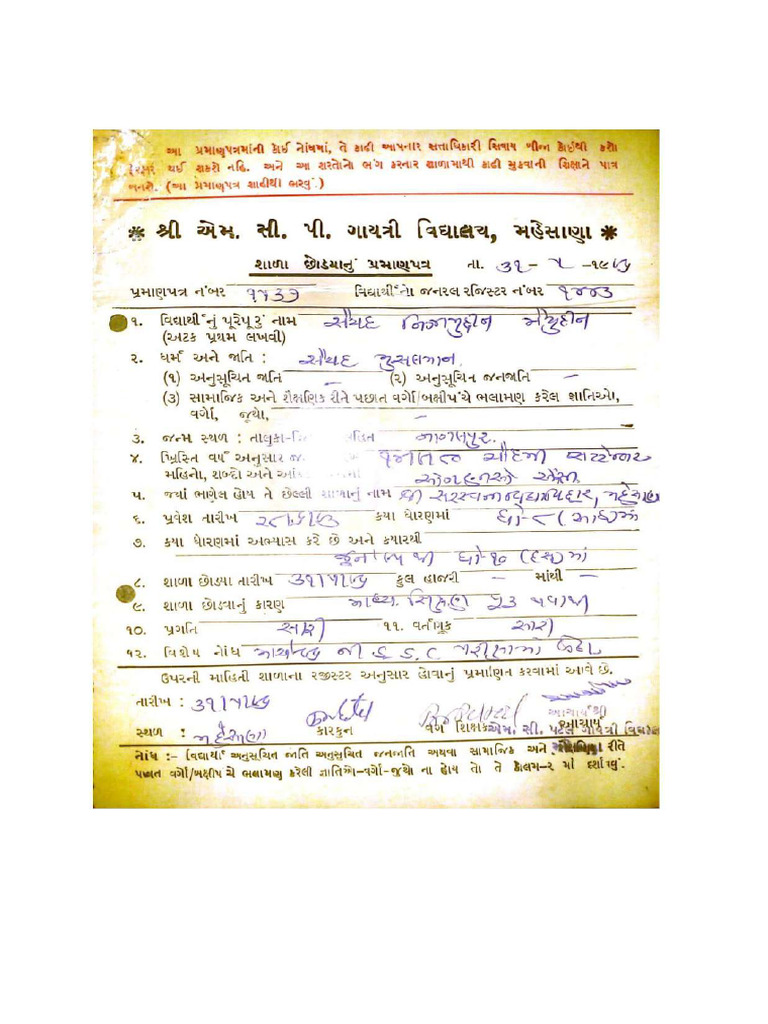 આ પ્રમાણપત્રમાંની કોઈ નોંધમાં, તે કાઢી આપનાર સત્તાધિકારી સિવાય બીજા કોઈથી કશો
ફેરફાર થઈ શકશે નહિ. અને આ શરતોનો ભંગ કરનાર શાળામાંથી કાઢી મુકવાની શિક્ષાને પાત્ર
બનશે. (આ પ્રમાણપત્ર શાહીથી ભરવું.)
* શ્રી એમ. સી. પી. ગાયત્રી વિદ્યાલય, મહેસાણા *
શાળા છોડયાનું પ્રમાણપત્ર તા. ૩૧- ૫ -૧૯
પ્રમાણપત્ર નંબર ૧૧૩૭ વિદ્યાર્થીનો જનરલ રજિસ્ટર નંબર ૧૪૪૩
૧. વિદ્યાર્થીનું પૂરેપૂરું નામ સૈયદ નિઝામુદ્દીન
(અટક પ્રથમ લખવી)
૨. ધર્મ અને જાતિ : સૈયદ મુસલમાન.
(૧) અનુસૂચિત જાતિ – (૨) અનુસૂચિત જનજાતિ –
(૩) સામાજિક અને શૈક્ષણિક રીતે પછાત વર્ગો/બક્ષીપંચે ભલામણ કરેલ જ્ઞાતિઓ,
વર્ગો, જૂથો, –
૩. જન્મ સ્થળ : તાલુકા- સહિત
૪. ખ્રિસ્તિ વર્ષ અનુસાર ચૌદમી સપ્ટેમ્બર
મહિનો, શબ્દો અને
૫. જ્યાં ભણેલ હોય તે છેલ્લી શાળાનું નામ શ્રી
૬. પ્રવેશ તારીખ કયા ધોરણમાં ધો-૮ (આઠ)માં
૭. કયા ધોરણમાં અભ્યાસ કરે છે અને કયારથી
જૂન થી ધો-૧૦ (દસ)માં
૮. શાળા છોડયા તારીખ કુલ હાજરી – માંથી –
૯. શાળા છોડવાનું કારણ માધ્ય. શિક્ષણ પુરૂ થવાથી
૧૦. પ્રગતિ સારી ૧૧. વર્તણૂક સારી
૧૨. વિશેષ નોંધ ની S.S.C પરીક્ષામાં
ઉપરની માહિતી શાળાના રજીસ્ટર અનુસાર હોવાનું પ્રમાણિત કરવામાં આવે છે.
તારીખ :
આચાર્યશ્રી
સ્થળ : મહેસાણા કારકુન વર્ગ શિક્ષક આચાર્ય
એમ. સી. પટેલ ગાયત્રી વિદ્યાલય
નોંધ :- (વિદ્યાર્થી અનુસૂચિત જાતિ અનુસૂચિત જનજાતિ અથવા સામાજિક અને રીતે
પછાત વર્ગો/બક્ષીપંચે ભલામણ કરેલી જ્ઞાતિઓ-વર્ગો-જુથો ના હોય તો તે કોલમ-૨ માં દર્શાવવું.